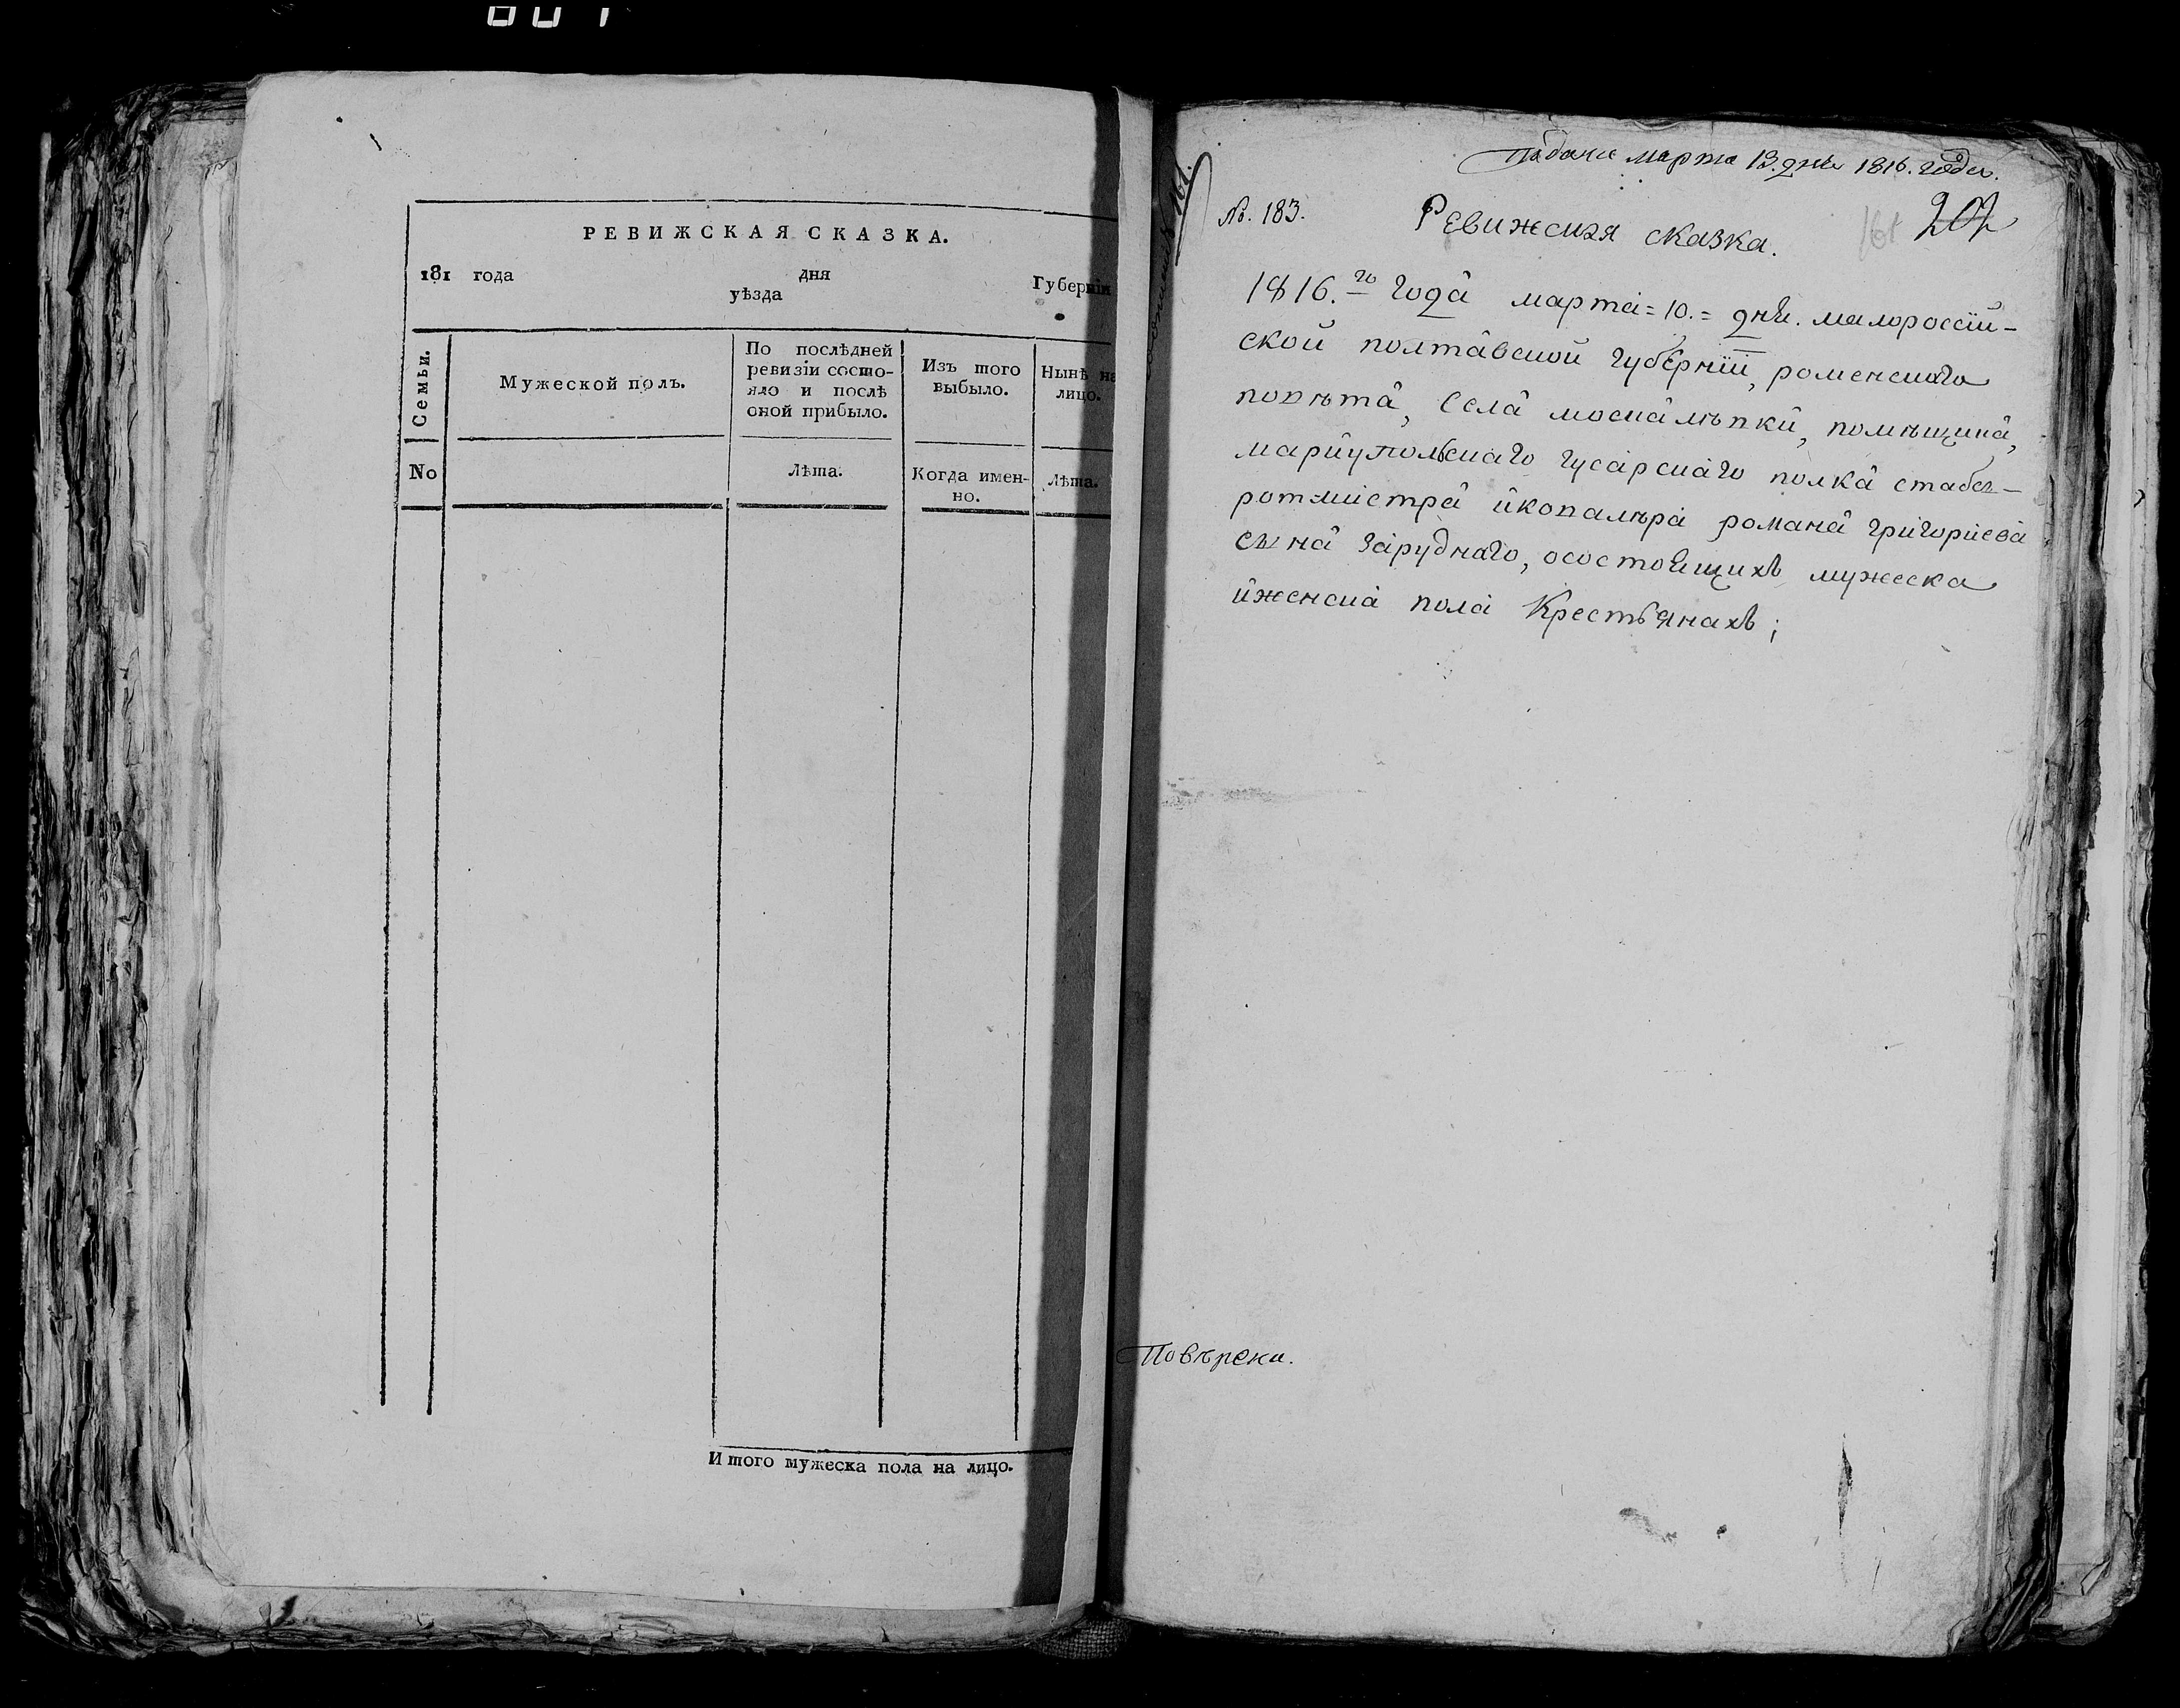 РЕВИЖСКАЯ СКАЗКА.
181 года дня Губерніи
уѣзда
Семьи.
Мужеской полъ.
По послѣдней
ревизіи состо-
яло и послѣ
оной прибыло.
Изъ того
выбыло.
Нынѣ на
лицо.
No
Лѣта.
Когда имен-
но.
Лѣта.
Итого мужеска пола на лицо.
Подана марта 13. дня 1816. года.
№. 183.
Ревижская сказка.
161
202
1816.го года марта = 10. = дня. малороссій-
ской полтавской губерніи, роменскаго
повѣта, села москалѣвки, помѣщика,
маріупольскаго гусарскаго полка стабсъ-
ротмистра и кавалѣра романа григоріева
сына заруднаго, о состоящихъ мужеска
и женска пола крестьянахъ;
Повѣрена.